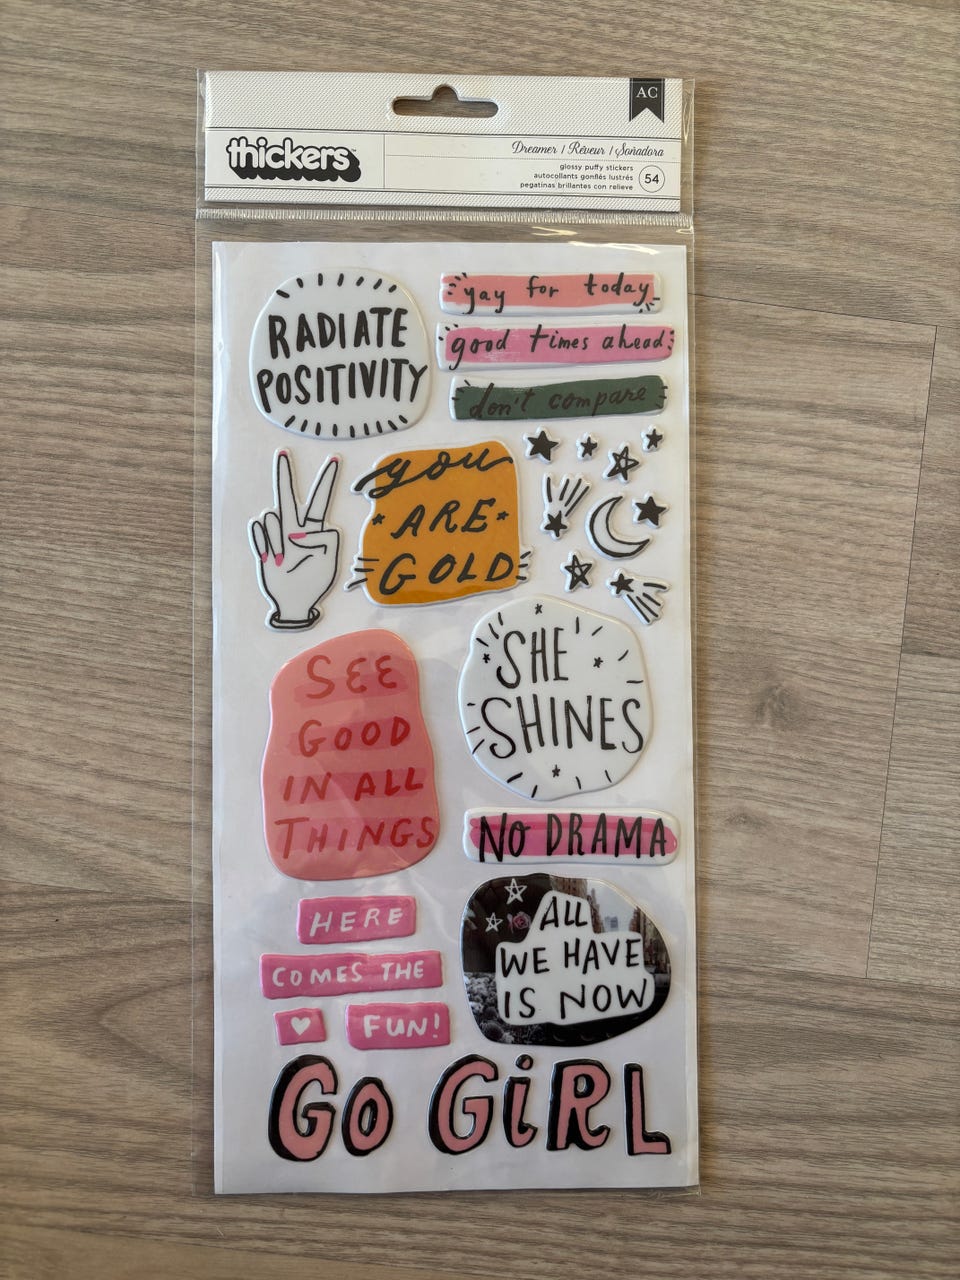 AC
thickers™
Dreamer / Rêveur / Soñadora
glossy puffy stickers
autocollants gonflés lustrés
pegatinas brillantes con relieve
54
RADIATE
POSITIVITY
yay for today
good times ahead
don't compare
you
ARE
GOLD
SHE
SHINES
SEE
GOOD
IN ALL
THINGS
NO DRAMA
ALL
WE HAVE
IS NOW
HERE
COMES THE
FUN!
GO GiRL